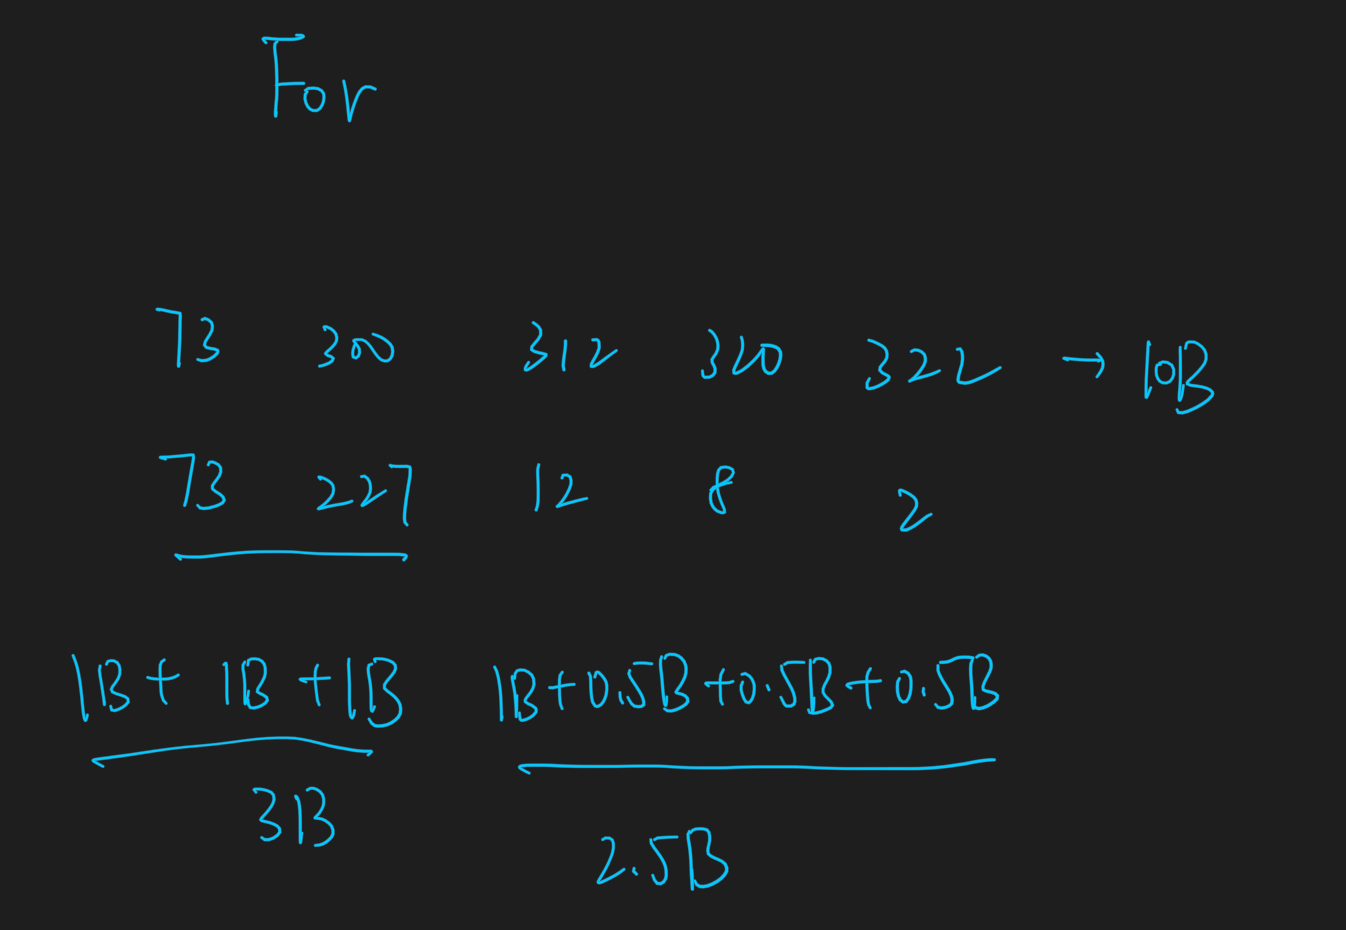 For
73 300 312 320 322 → 10B
73 227 12 8 2
1B + 1B + 1B 1B + 0.5B + 0.5B + 0.5B
3B 2.5B